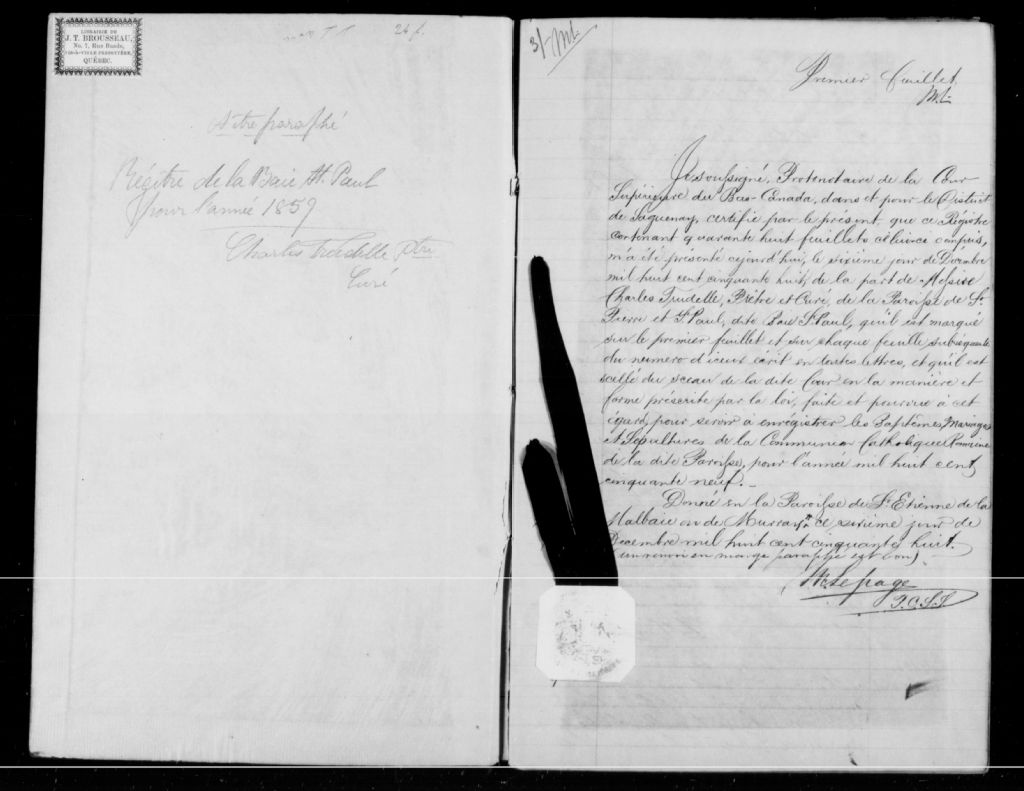 LIBRAIRIE DE
J. T. BROUSSEAU,
No. 7, Rue Buade,
VIS-À-VIS LE PRESBYTÈRE,
QUÉBEC.
26 f.
A être paraphé
Régitre de la Baie St. Paul
pour l'année 1859
Charles Trudelle ptre
Curé
3/ ML
Premier feuillet
ML
Je soussigné, Protonotaire de la Cour
Supérieure du Bas-Canada, dans et pour le District
de Saguenay, certifie par le présent que ce Régistre
contenant quarante huit feuillets celui-ci compris,
m'a été présenté aujourd'hui, le sixième jour de Décembre
mil huit cent cinquante huit, de la part de Messire
Charles Trudelle, Prêtre et Curé, de la Paroisse de St.
Pierre et St. Paul, dite Baie St. Paul, qu'il est marqué
sur le premier feuillet et sur chaque feuille subséquente
du numero d'iceux écrit en toutes lettres, et qu'il est
scellé du sceau de la dite Cour en la manière et
forme préscrite par la loi, faite et pourvue à cet
égard, pour servir à enrégistrer les Baptêmes, Mariages
et Sépultures de la Communion Catholique Romaine
de la dite Paroisse, pour l'année mil huit cent
cinquante neuf.
Donné en la Paroisse de St. Etienne de la
Malbaie ou de Murray ce sixième jour de
Decembre mil huit cent cinquante huit.
(un renvoi en marge paraphé est bon)
Lepage
P.C.S.S.